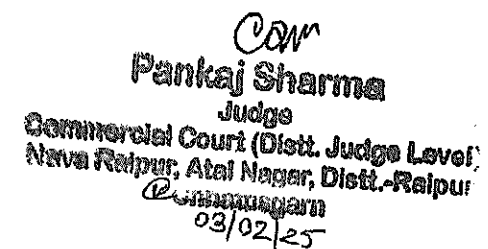 Pankaj Sharma
Judge
Commercial Court (Distt. Judge Level)
Nava Raipur, Atal Nagar, Distt.-Raipur
03/02/25